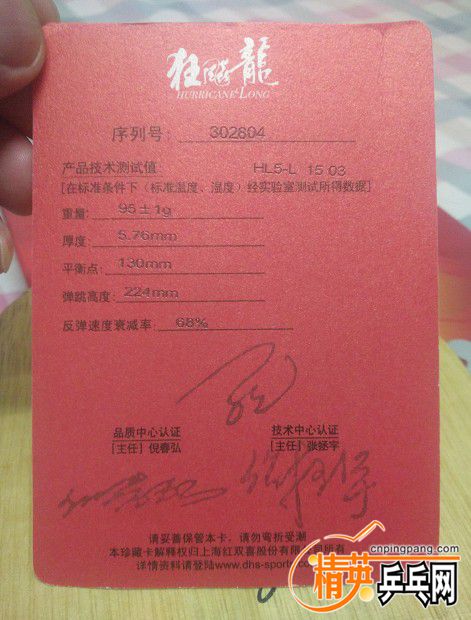 狂飚龍
HURRICANE LONG
序列号: 302804
产品技术测试值: HL5-L 15 03
[在标准条件下（标准温度、湿度）经实验室测试所得数据]
重量: 95±1g
厚度: 5.76mm
平衡点: 130mm
弹跳高度: 224mm
反弹速度衰减率: 68%
品质中心认证 技术中心认证
[主任] 倪春弘 [主任] 张拯宇
请妥善保管本卡，请勿弯折受潮
本珍藏卡解释权归上海红双喜股份有限公司所有
详情资料请登陆www.dhs-sports.
cnpingpang.com
精英乒乓网